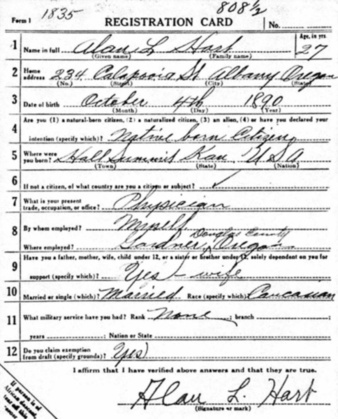 808½
Form 1 1835 REGISTRATION CARD No.
1 Name in full Alan L Hart Age, in yrs. 27
(Given name) (Family name)
2 Home address 234 Calapooia St Albany Oregon
(No.) (Street) (City) (State)
3 Date of birth October 4th 1890
(Month) (Day) (Year)
4 Are you (1) a natural-born citizen, (2) a naturalized citizen, (3) an alien, (4) or have you declared your
intention (specify which)? Native born Citizen
5 Where were you born? Hall Summit Kan USA
(Town) (State) (Nation)
6 If not a citizen, of what country are you a citizen or subject?
7 What is your present trade, occupation, or office? Physician
8 By whom employed? Myself
Douglas County
Where employed? Gardner, Oregon
9 Have you a father, mother, wife, child under 12, or a sister or brother under 12, solely dependent on you for
support (specify which)? Yes - wife
10 Married or single (which)? Married Race (specify which)? Caucasian
11 What military service have you had? Rank None ; branch
years ; Nation or State
12 Do you claim exemption from draft (specify grounds)? Yes
I affirm that I have verified above answers and that they are true.
Alan L. Hart
(Signature or mark)